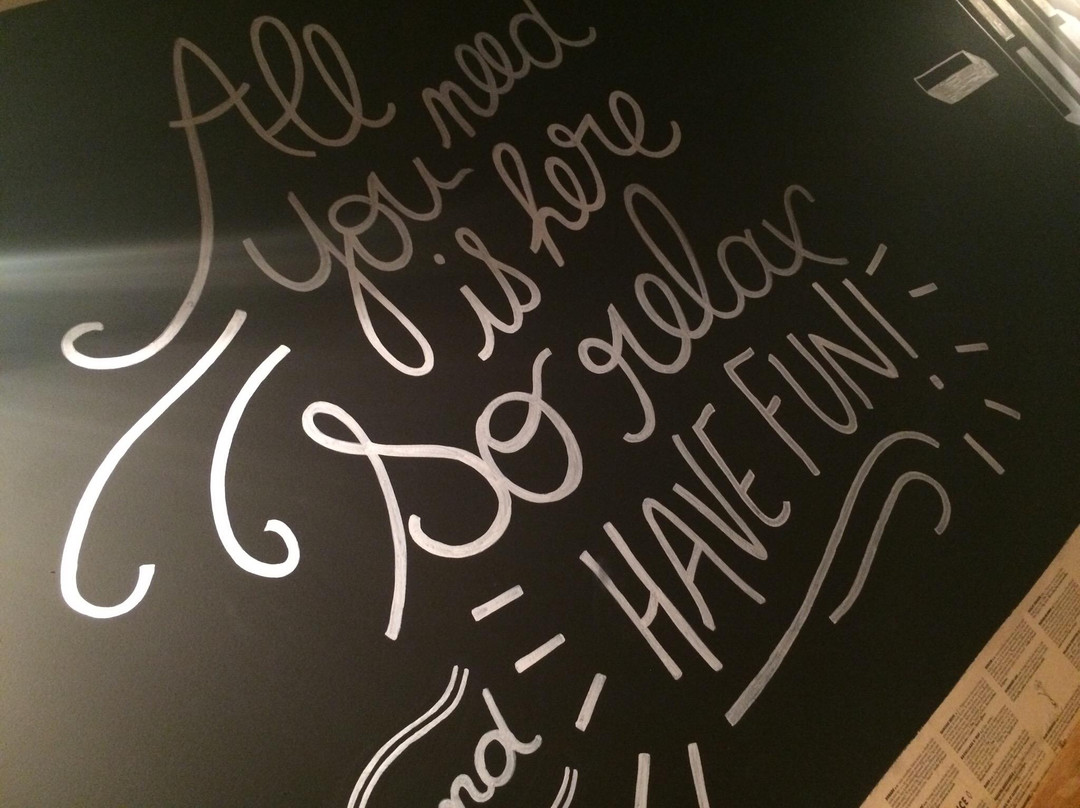 All need
you is here
So relax
HAVE FUN!
nd